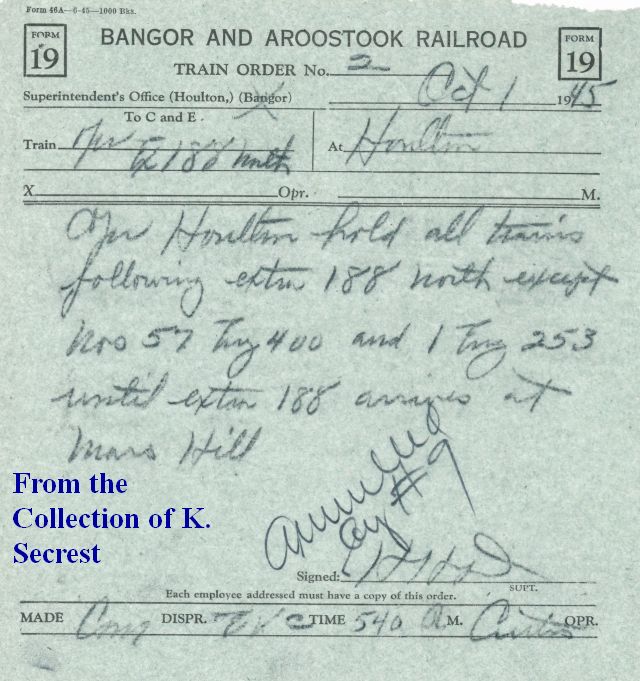 Form 46A—6-45—1000 Bks.
FORM 19
BANGOR AND AROOSTOOK RAILROAD
FORM 19
TRAIN ORDER No. 2
Oct 1 1945
Superintendent's Office (Houlton,) (Bangor)
To C and E
Train Opr
E 188 North
At Houlton
X Opr. M.
Opr Houlton hold all trains
following extra 188 north except
Nos 57 Eng 400 and 1 Eng 253
until extra 188 arrives at
Mars Hill
From the
Collection of K.
Secrest
Annulled
by #9
Signed:
SUPT.
Each employee addressed must have a copy of this order.
MADE Com DISPR. TIME 540 A M. Curtis OPR.